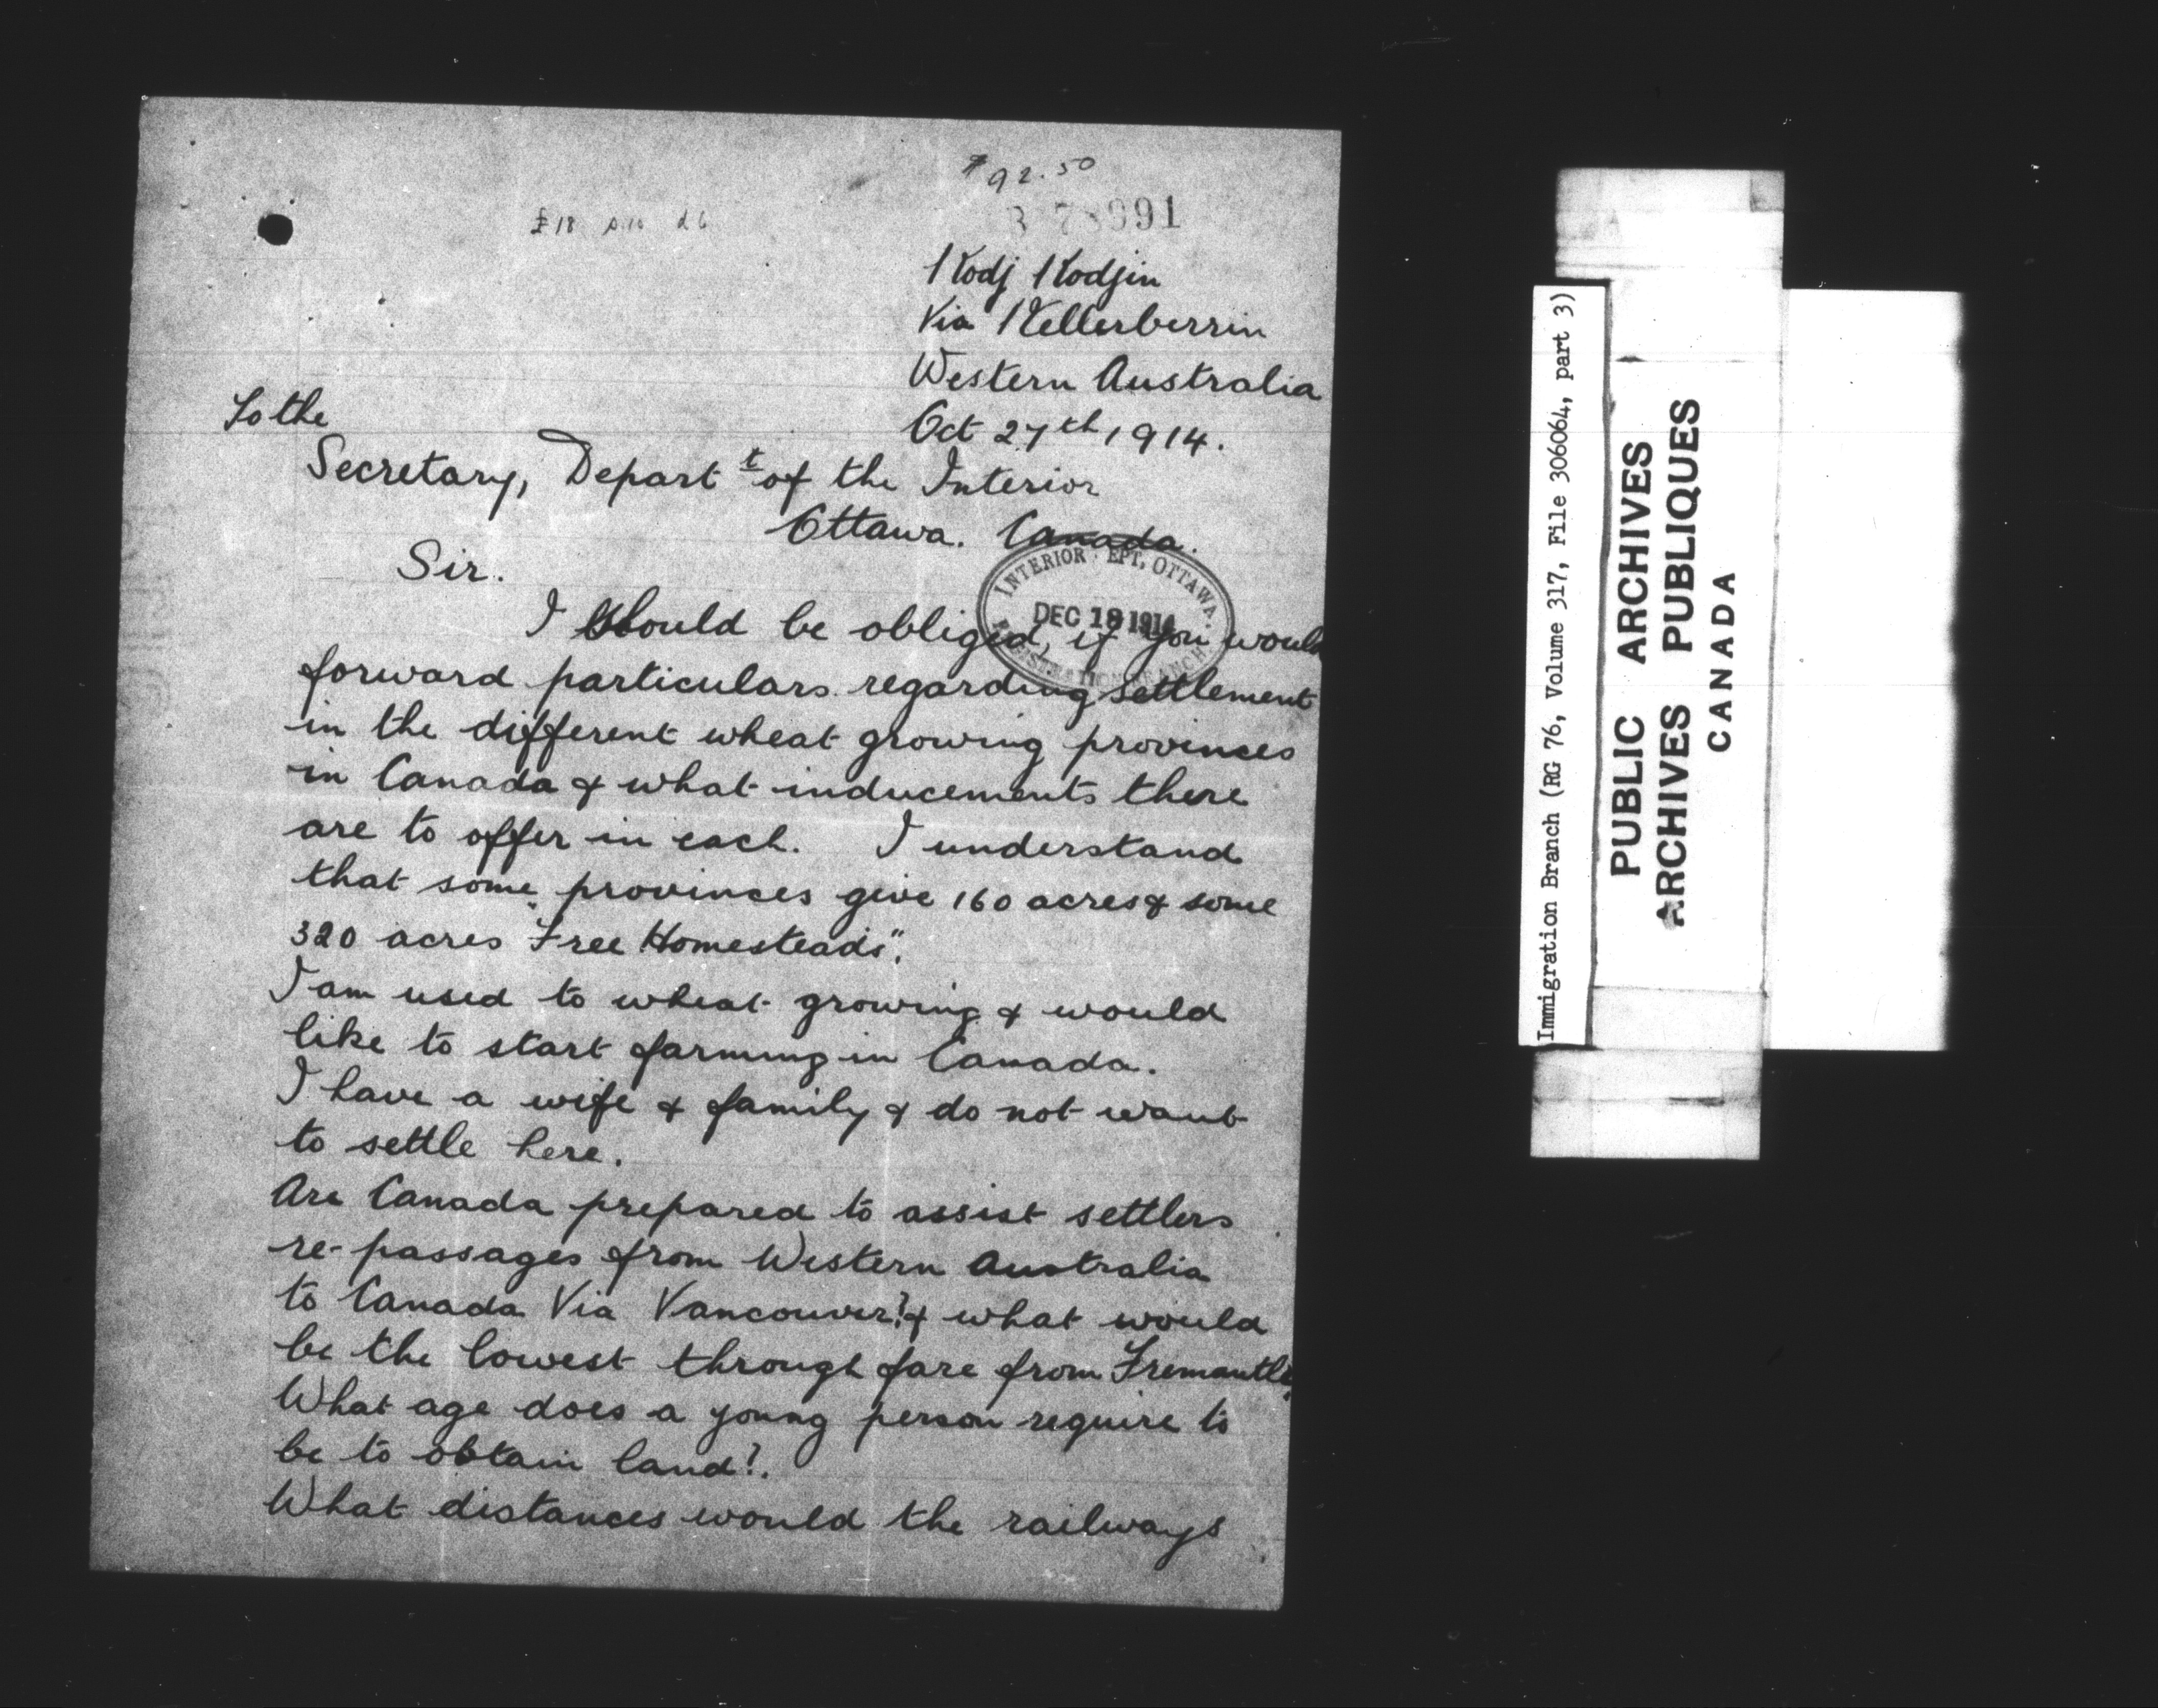 $92.50
£18 s10 d6
78991
Kodj Kodjin
Via Kellerberrin
Western Australia
Oct 27th, 1914.
To the
Secretary, Depart t of the Interior
Ottawa. Canada.
INTERIOR DEPT, OTTAWA.
DEC 18 1914
REGISTRATION BRANCH
Sir.
I should be obliged, if you would
forward particulars regarding settlement
in the different wheat growing provinces
in Canada & what inducements there
are to offer in each. I understand
that some provinces give 160 acres & some
320 acres "Free Homesteads".
I am used to wheat growing & would
like to start farming in Canada.
I have a wife & family & do not want
to settle here.
Are Canada prepared to assist settlers
re-passages from Western Australia
to Canada Via Vancouver? & what would
be the lowest through fare from Fremantle?
What age does a young person require to
be to obtain land?.
What distances would the railways
Immigration Branch (RG 76, Volume 317, File 306064, part 3)
PUBLIC ARCHIVES
ARCHIVES PUBLIQUES
CANADA